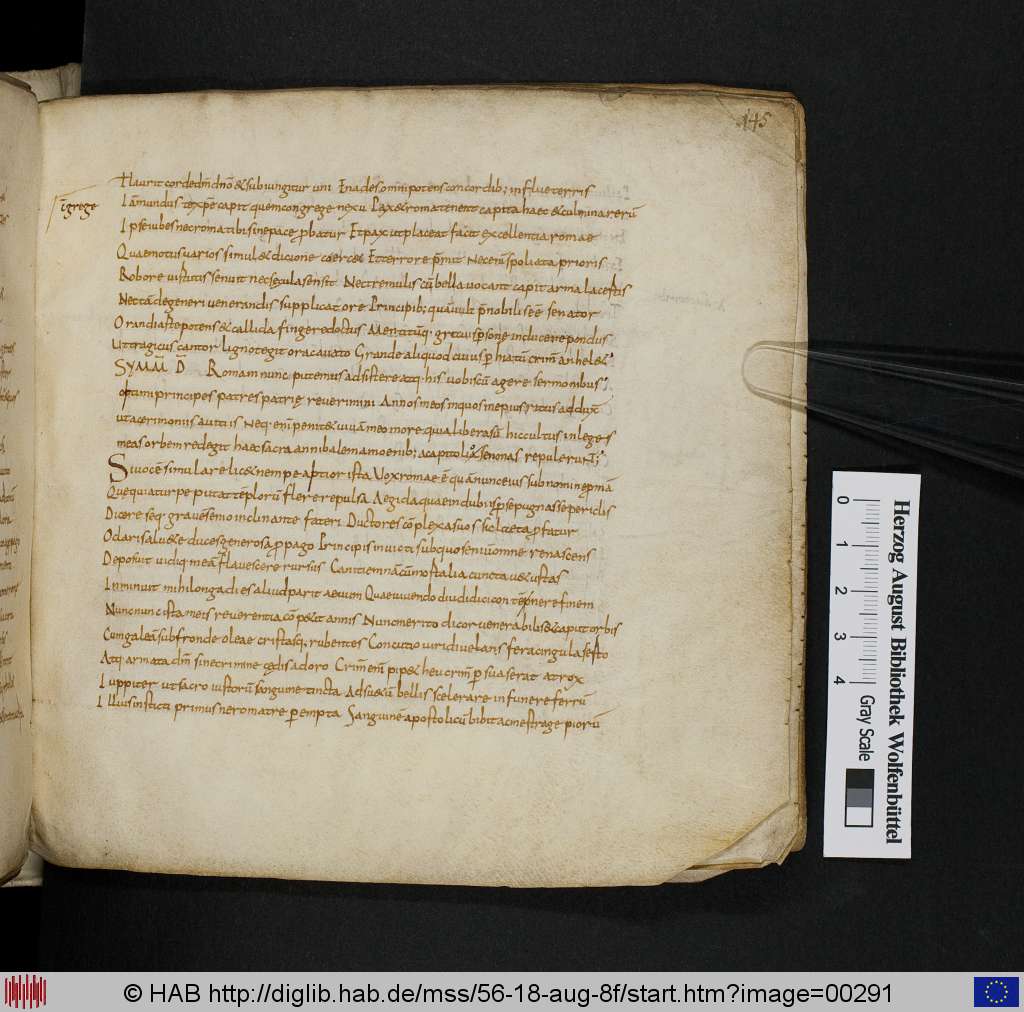 145
Haurit corde dm dno & subiungitur uni En ades omnipotens concordib; influe terris
ī grege
Iā mundus te xpe capit quem congrege nexu Pax & roma tenent capita haec & culmina rerū
Ipse iubes nec roma tibi sine pace pbatur Et pax ut placeat facit excellentia romae
Quae motus uarios simul & dicione coerc& Et terrore pmit Nec enī spoliata prioris
Robore uirtutis senuit nec secula sensit Nec tremulis cū bella uocant capit arma lacertis
Nec tā degeneri uenerandis supplicat ore Principib; quā uult pnobilis eē senator
Orandi arte potens & callida fingere doctus Mentitūq. grauis psonę inducere pondus
Ut tragicus cantor ligno tegit ora cauato Grande aliquod cuius p hiatū crim anhel&
SYMM D Romam nunc putemus adsistere atq. his uobiscū agere sermonibus
optimi principes patres patrię reueremini Annos meos in quos me pius ritus adduxit
ut acerimoniis auitis Neq. enī penit& uiuā meo more quia libera sū hic cultus in leges
meas orbem redegit haec sacra annibalem a moenib; a capitolio senonas repulerunt;
Si uocē simulare lic& nempe aptior ista Vox romae ē quā nunc eius sub nomine pmā
Quę quia turpe putat tēplorū flere repulsā Aegidaquae in dubiis p se pugnasse periclis
Dicere seq. grauē senio inclinante fateri Ductores cōplexa suos sic laeta pfatur
O clari salu&e duces generosa ppago Principis inuicti sub quo seniū omne renascens
Deposui uidiq. meā flauescere rursus Canitiem nā cū mortalia cuncta uetustas
Inminuit mihi longa dies aliud parit aeuum Quae uiuendo diu didici contēpnere finem
Nunc nunc iusta meis reuerentia cōp&it annis Nunc merito dicor uenerabilis & caput orbis
Cum galeā sub fronde oleae cristasq. rubentes Concutio uiridi uelans fera cingula serto
Atq. armata dm sine crimine cędis adoro Crimē enī pip& heu crim psuaserat atrox
Iuppiter ut sacro iustorū sanguine tincta Adsuetū bellis scelerare in funere ferrū
Illius instictu primus nero matre perempta Sanguinē apostolicū bibit ac me strage piorū
0 1 2 3 4
Herzog August Bibliothek Wolfenbüttel
Gray Scale
© HAB http://diglib.hab.de/mss/56-18-aug-8f/start.htm?image=00291